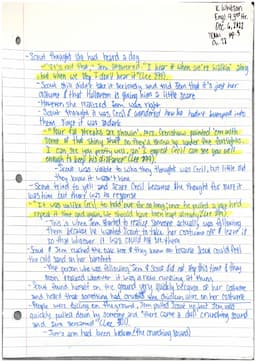 K. Watson
Engl 9, 3rd Hr.
Dec. 6, 2022
TKAM
Ch. 28
- Scout thought she had heard a dog
- "It's not that," Jem answered. "I hear it when we're walkin' along
but when we stop I don't hear it" (Lee 294).
- Scout this didn't take it seriously and told Jem that it's just her
costume & that Halloween is giving him a little scare
- However she realized Jem was right
- Scout thought it was Cecil & wondered how he hadn't bumped into
them since it was so dark
- "Your fat streaks are showin'. Mrs. Crenshaw painted 'em with
some of that shiny stuff so they'd show up under the footlights.
I can see you pretty well, an' I expect Cecil can see you well
enough to keep his distance" (Lee 294).
- Scout was visible to who they thought was Cecil, but little did
they know it wasn't him
- Scout tried to yell and scare Cecil because she thought for sure it
was him but there was no response
- "It was unlike Cecil to hold out for so long; once he pulled a joke he'd
repeat it time and again. We should have been leapt at already" (Lee 295).
- This is when Jem started to realize someone actually was following
them because he wanted Scout to take her costume off & leave it
so that whoever it was could not see them
- Scout & Jem reached the oak tree & they knew so because Scout could feel
the cold sand on her barefeet
- The person who was following Jem & Scout did not stop this time & they
soon realized whoever it was,
- Scout found herself on the ground very quickly because of her costume
and heard that something had crushed the chicken wire on her costume
- People were rolling on the ground, Jem pulled Scout up just Jem was
quickly pulled down by someone and "there came a dull crunching sound
and Jem screamed" (Lee
- Jem's arm had been broken (the crunching sound)